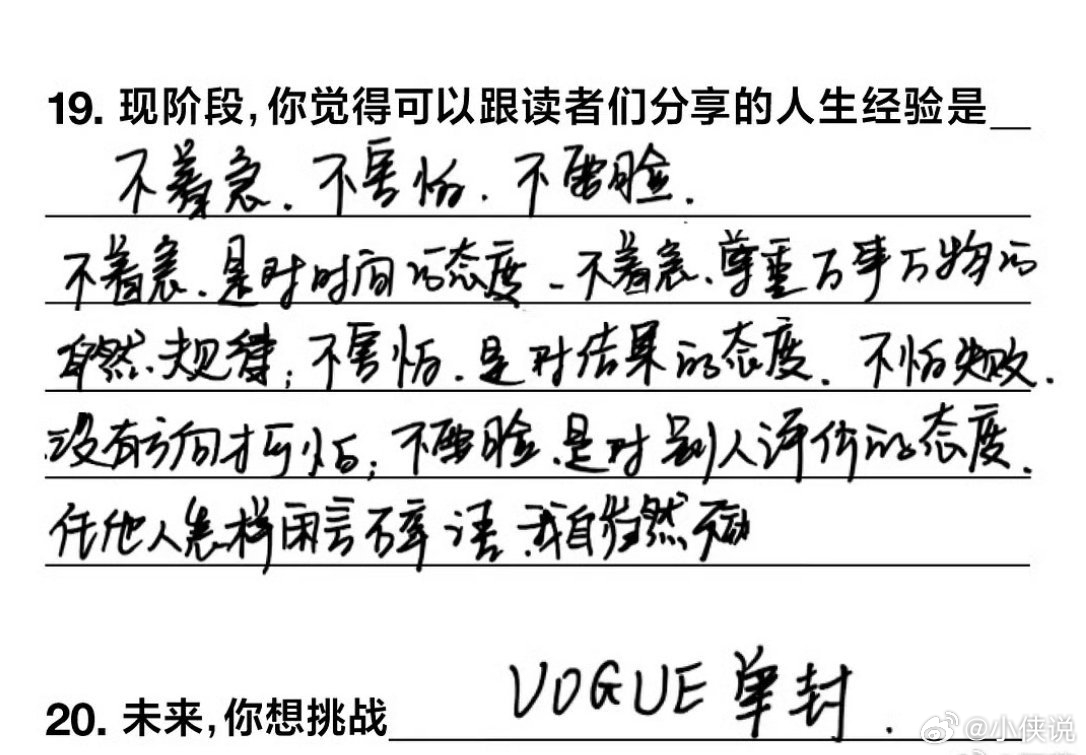 19. 现阶段,你觉得可以跟读者们分享的人生经验是__
不着急. 不害怕. 不要脸.
不着急.是对时间的态度-不着急.尊重万事万物的
自然规律;不害怕.是对结果的态度.不怕失败.
没有方向才可怕;不要脸.是对别人评价的态度.
任他人怎样闲言碎语.我自岿然不动
20. 未来,你想挑战 VOGUE 单封.
@小侠说